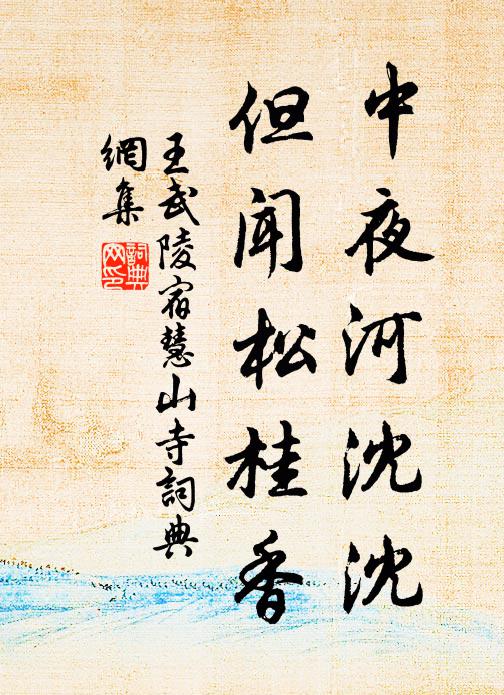 中夜河沈沈
但聞松桂香
王武陵宿慧山寺詞典
網集
詞典
网印